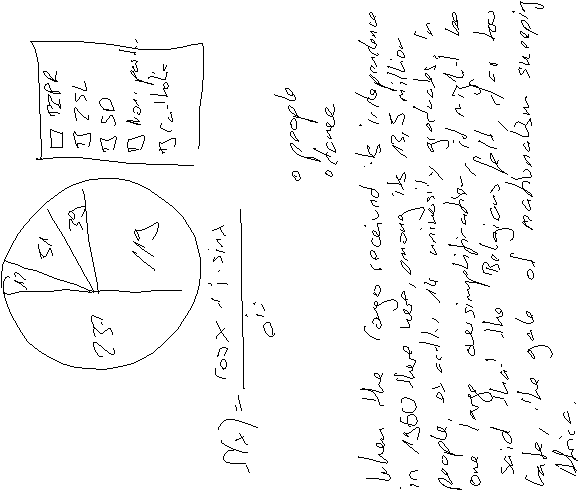 PZPR
ZSL
SD
Non-parti.
Catholic
17
51
39
119
f(x) = cos x + i · sin x
o people
o dance
When the Congo received its independence
in 1960 there were, among its 13,5 million
people, exactly 14 university graduates; in
one large oversimplification, it might be
said that the Belgians felt, far too
late, the gale of nationalism sweeping
Africa.